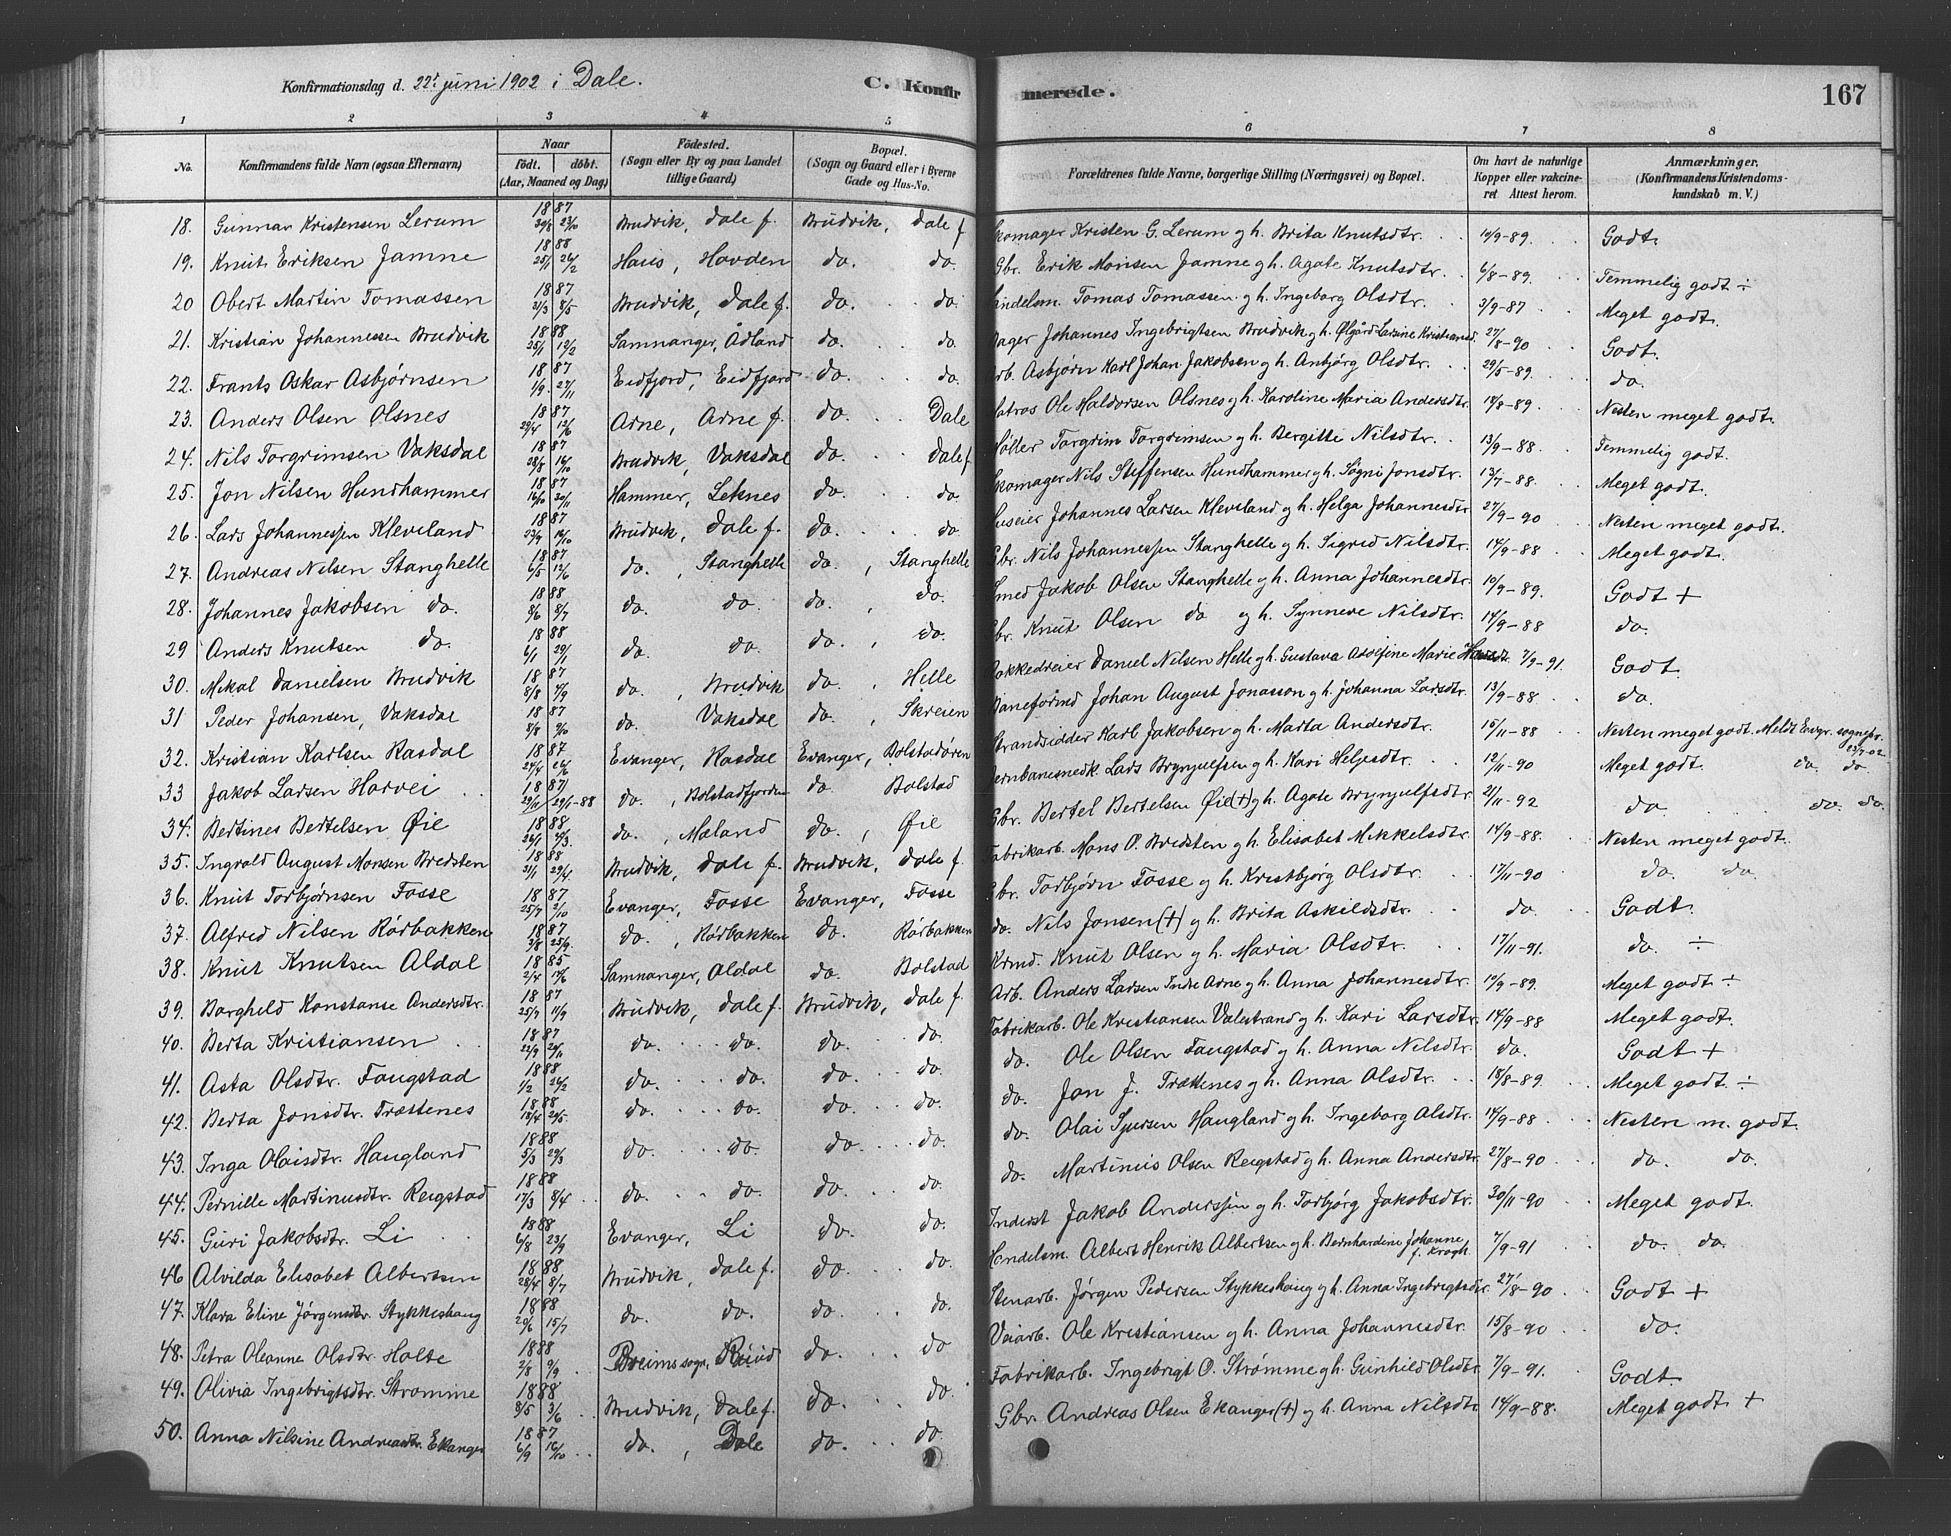 Konfirmationsdag d. 22. juni 1902 i Dale.
C. Konfir
merede.
167
1 2 3 4 5 6 7 8
No. Konfirmandens fulde Navn (ogsaa Efternavn) Naar födt. döbt. (Aar, Maaned og Dag) Födested. (Sogn eller By og paa Landet tillige Gaard) Bopæl. (Sogn og Gaard eller i Byerne Gade og Hus-No. Forældrenes fulde Navne, borgerlige Stilling (Næringsvei) og Bopæl. Om havt de naturlige Kopper eller vakcineret Attest herom. Anmærkninger. (Konfirmandens Kristendomskundskab m. V.)
18. Gunnar Kristensen Lerum 1887 30/8 23/10 Brudvik, Dale f. Brudvik, Dale f Skomager Kristen G. Lerum og h. Brita Knutsdtr. 10/9-89. Godt
19. Knut Eriksen Jamne 1888 25/1 26/2 Haus, Hovden do. do. Gbr. Erik Monsen Jamne og h. Agate Knutsdtr. 6/8-89. Temmelig godt ÷
20 Obert Martin Tomassen 1887 21/3 8/5 Brudvik, Dale f. do. do. Handelsm. Tomas Tomassen og h. Ingeborg Olsdtr. 3/9-87 Meget godt.
21. Kristian Johannessen Brudvik 1888 25/1 12/2 Samnanger, Ådland do. do. Bager Johannes Ingebrigtsen Brudvik og h. Ølgård Larsine Kristiansd. 27/8-90 Godt.
22. Frants Oskar Asbjørnsen 1887 1/9 27/11 Eidfjord, Eidfjord do. do. Arb. Asbjørn Karl Johan Jakobsen og h. Anbjørg Olsdtr. 29/5-89. do.
23. Anders Olsen Olsnes 1887 29/4 12/6 Arne, Arne f. do. Dale Matros Ole Haldorsen Olsnes og h. Karoline Maria Andersdtr. 18/8-89. Nesten meget godt.
24. Nils Torgrimsen Vaksdal 1887 28/8 16/10 Brudvik, Vaksdal do. Dale f Møller Torgrim Torgrimsen og h. Bergitte Nilsdtr. 13/9-88 Temmelig godt.
25. Jon Nilsen Hundhammer 1887 16/10 20/11 Hammer, Leknes do. do. Skomager Nils Steffensen Hundhammer og h. Søgni Jonsdtr. 13/7-88. Meget godt.
26. Lars Johannessen Kleveland 1887 23/9 16/10 Brudvik, Dale f. do. do Huseier Johannes Larsen Kleveland og h. Helga Johannesdtr. 27/9-90 Nesten meget godt.
27. Andreas Nilsen Stanghelle 1887 6/5 12/6 do., Stanghelle do., Stanghelle Gbr. Nils Johannessen Stanghelle og h. Sigrid Nilsdtr. 14/9-88 Meget godt.
28. Johannes Jakobsen do. 1888 8/6 8/7 do. do. do., do. Smed Jakob Olsen Stanghelle og h. Anna Johannesdtr. 10/9-89. Godt +
29 Anders Knutsen do. 1888 6/1 29/1 do. do. do., do. Gbr. Knut Olsen do og h. Synneve Nilsdtr. 14/9-88 do.
30. Mikal Danielsen Brudvik 1887 8/8 4/9 do., Brudvik do., Helle Rokkedreier Daniel Nilsen Helle og h. Gustava Adolfine Marie 7/9-91. Godt
31 Peder Johansen, Vaksdal 1887 5/8 9/10 do. Vaksdal do., Skreien Baneformd Johan August Jonasson og h. Johanna Larsdtr. 13/9-88 do.
32. Kristian Karlsen Rasdal 1887 24/4 26/6 Evanger, Rasdal Evanger, Bolstadøren Strandsidder Karl Jakobsen og h. Marta Andersdtr. 15/11-88 Nesten meget godt. Meldt Evgr. sognepr. 23/7-02
33 Jakob Larsen Horvei 1887 29/11 29/1-88 do., Bolstadfjorden do. Bolstad Jernbanesmedk. Lars Brynjulfsen og h. Kari Helgesdtr. 12/11-90 Meget godt do. do.
34. Bertines Bertelsen Øie 1888 26/1 4/3. do., Mæland do., Øie Gbr. Bertel Bertelsen Øie (+) og h. Agate Brynjulfsdtr. 21/11-92 do do. do.
35. Ingvald August Monsen Bredsten 1888 31/1 29/4. Brudvik, Dale f. Brudvik, Dale f. Fabrikarb. Mons O. Bredsten og h. Elisabet Mikkelsdtr. 14/9-88. Nesten meget godt.
36. Knut Torbjørnsen Fosse 1887 25/7 2/10 Evanger, Fosse Evanger, Fosse Gbr. Torbjørn Fosse og h. Kristbjørg Olsdtr. 17/11-90 do. do.
37. Alfred Nilsen Rørbakken 1887 3/8 25/9. do., Rørbakken do. Rørbakken do. Nils Jonsen (+) og h. Brita Askildsdtr. do. Godt.
38. Knut Knutsen Aldal 1885 2/4 14/6 Samnanger, Aldal do. Bolstad Krmd. Knut Olsen og h. Maria Olsdtr. 17/11-91. do. ÷
39. Borghild Konstanse Andersdtr. 1887 25/7 11/9 Brudvik, Dale f. Brudvik, Dale f. Arb. Anders Larsen Indre Arne og h. Anna Johannesdtr. 10/9-89. Meget godt ÷
40. Berta Kristiansen 1887 22/9 20/11 do. do. do. do. Fabrikarb. Ole Kristiansen Valestrand og h. Kari Larsdtr. 14/9-88 Meget godt.
41. Asta Olsdtr. Fougstad 1888 1/2 26/2 do. do. do. do. do. Ole Olsen Faugstad og h. Anna Nilsdtr. do. Godt +
42. Berta Jonsdtr. Trættenes 1888 18/4 20/5. do. do. do. do. do. Jon J. Trættenes og h. Anna Olsdtr. 18/8-89. Meget godt ÷
43. Inga Olaisdtr. Haugland 1888 5/3 29/3 do. do. do. do. do. Olai Sjursen Haugland og h. Ingeborg Olsdtr. 14/9-88 Nesten m. godt.
44. Pernille Martinusdtr. Reigstad 1888 17/3 8/4 do. do. do. do. do. Martinus Olsen Reigstad og h. Anna Andersdtr. 27/8-90 do. do.
45. Guri Jakobsdtr. Li 1888 6/8 23/9 Evanger, Li do. do. Inderst Jakob Anderssen og h. Torbjørg Jakobsdtr. 30/11-90 Meget godt.
46 Alvilda Elisabet Albertsen 1888 28/4 8/7 Brudvik, Dale f. do. do. Handelsm. Albert Henrik Albertsen og h. Bernhardine Johanne f. Krogh. 7/9-91 do. do.
47. Klara Eline Jørgensdtr Stykkeshaug 1888 20/6 15/7 do. do. do. do. Stenarb. Jørgen Pedersen Stykkeshaug og h. Anna Ingebrigtsdtr. 27/8-90 Godt +
48. Petra Oleanne Olsdtr. Holte 1888 2/8 9/9 Breims sogn, do. do Veiarb. Ole Kristiansen og h. Anna Johannesdtr. 15/8-90 do.
49. Olivia Ingebrigtsdtr. Strømme 1888 8/5 3/6 Brudvik, Dale f. do. do. Fabrikarb. Ingebrigt O. Strømme og h. Gunhild Olsdtr. 7/9-91. Godt.
50. Anna Nilsine Andreasdtr. Ekanger 1887 6/9 16/10 do., Dale do. do. Gbr. Andreas Olsen Ekanger (+) og h. Anna Nilsdtr. 14/9-88. Meget godt +